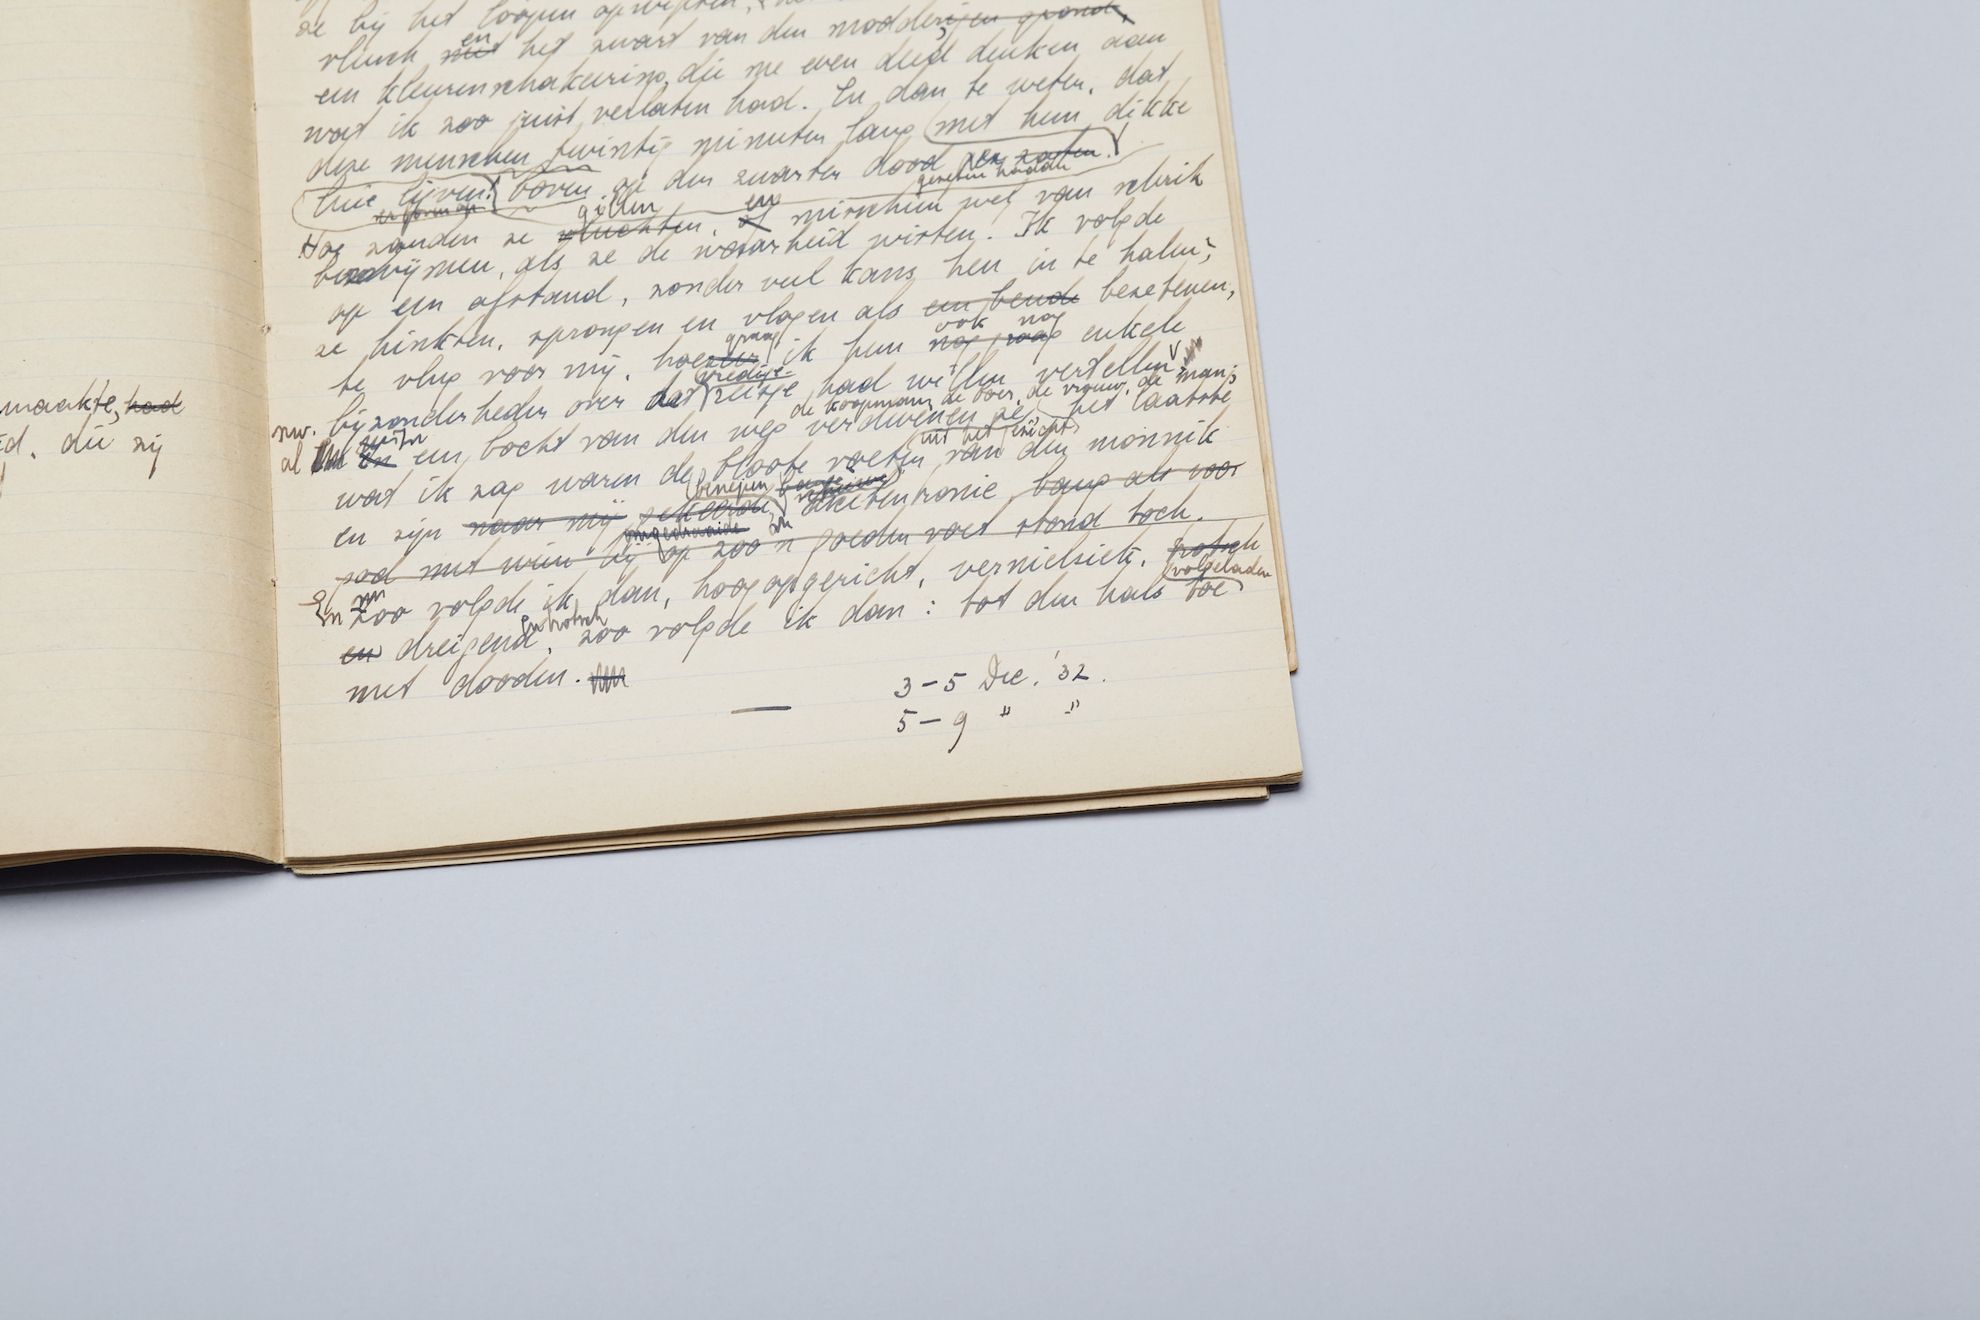 maakte, had
d. die zij
ze bij het loopen opwipten,
vleesch met en het zwart van den modderigen grond,
een kleurenschakeering, die me even deed denken aan
wat ik zoo juist verlaten had. En dan te weten, dat
deze menschen twintig minuten lang (met hun dikke
luie lijven) boven op den zwarten dood gezeten hadden
Hoe zouden ze vluchten, gillen en misschien wel van schrik
bezwijmen, als ze de waarheid wisten. Ik volgde
op een afstand, zonder veel kans hen in te halen;
ze hinkten, sprongen en vlogen als een bende bezetenen,
te vlug voor mij, hoe graag ik hun ook nog enkele
bijzonderheden over dat vredige reisje had willen vertellen
de koopman, de boer, de vrouw, de man;
al in een bocht van den weg verdwenen ze (uit het gezicht) het laatste
wat ik zag waren de bloote voeten van den monnik
en zijn naar mij gekeerde, tronie, bang als voor
god met wien hij op zoo'n goeden voet stond toch.
En Zoo volgde ik dan, hoog opgericht, vernielziek, trotsch
volgeladen
en dreigend, en trotsch zoo volgde ik dan: tot den hals toe
met dooden.
3-5 Dec. '32.
5-9 " "